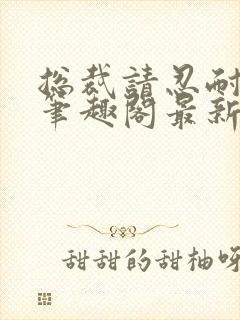 总裁請忍耐
筆趣閣最新
甜甜的甜柚呀